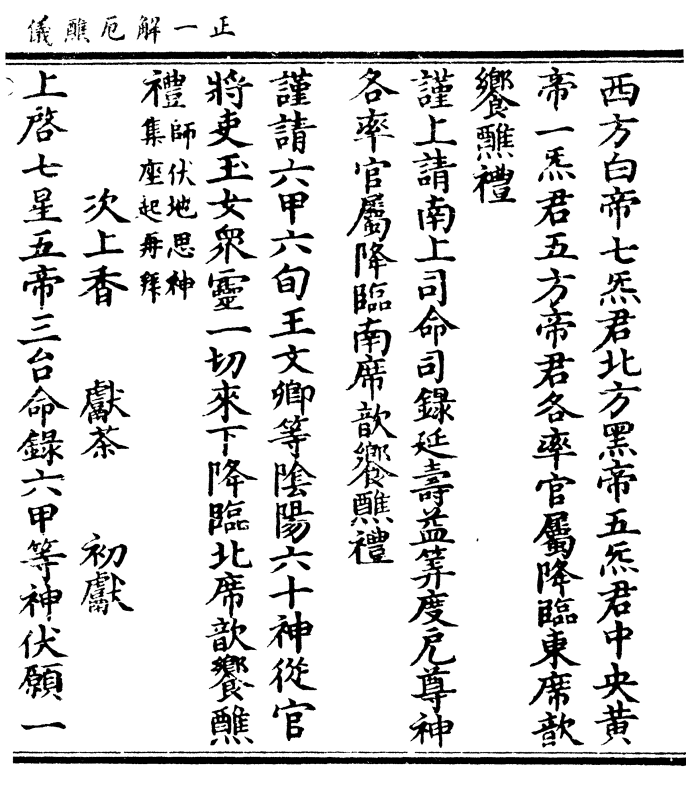 正一解厄醮儀
西方白帝七炁君北方黑帝五炁君中央黃
帝一炁君五方帝君各率官屬降臨東席歆
饗醮禮
謹上請南上司命司錄延壽益筭度厄尊神
各率官屬降臨南席歆饗醮禮
謹請六甲六旬王文卿等陰陽六十神從官
將吏玉女眾靈一切來下降臨北席歆饗醮
禮師伏地思神集座起再拜
次上香 獻茶 初獻
上啓七星五帝三台命錄六甲等神伏願一